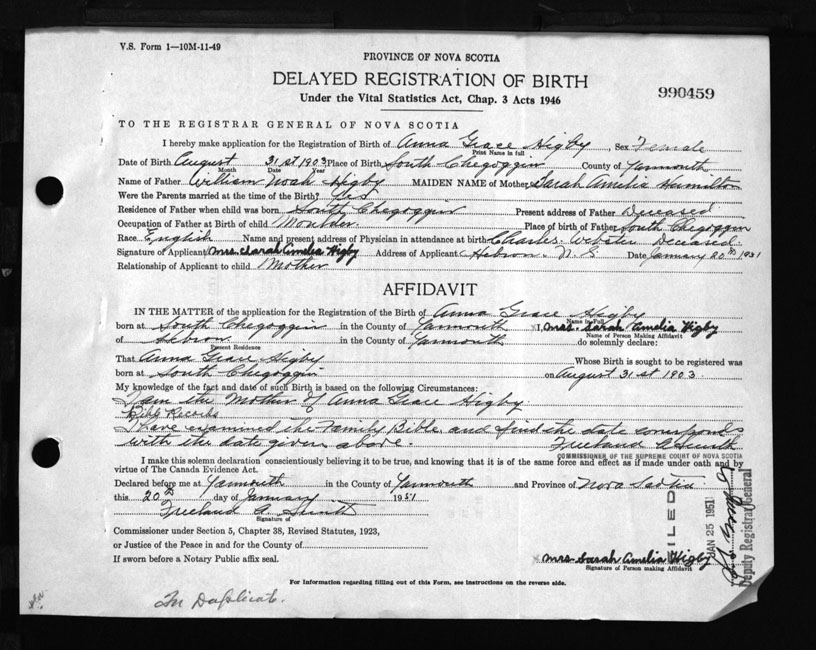 V.S. Form 1—10M-11-49
PROVINCE OF NOVA SCOTIA
DELAYED REGISTRATION OF BIRTH
990459
Under the Vital Statistics Act, Chap. 3 Acts 1946
TO THE REGISTRAR GENERAL OF NOVA SCOTIA
I hereby make application for the Registration of Birth of Anna Grace Higby, Sex Female
Print Name in full
Date of Birth August 31st 1903 Place of Birth South Chegoggin County of Yarmouth
Month Date Year
Name of Father William Noah Higby MAIDEN NAME of Mother Sarah Amelia Hamilton
Were the Parents married at the time of the Birth? Yes
Residence of Father when child was born South Chegoggin Present address of Father Deceased
Occupation of Father at Birth of child Moulder. Place of birth of Father South Chegoggin
Race English Name and present address of Physician in attendance at birth Charles Webster Deceased.
Signature of Applicant Mrs. Sarah Amelia Higby Address of Applicant Hebron. N. S Date January 20th 1951
Relationship of Applicant to child Mother
AFFIDAVIT
IN THE MATTER of the application for the Registration of the Birth of Anna Grace Higby
Name in Full
born at South Chegoggin in the County of Yarmouth x I, Mrs. Sarah Amelia Higby
Name of Person Making Affidavit
of Hebron in the County of Yarmouth do solemnly declare:
Present Residence
That Anna Grace Higby Whose Birth is sought to be registered was
born at South Chegoggin on August 31st 1903.
My knowledge of the fact and date of such Birth is based on the following Circumstances:
I am the Mother of Anna Grace Higby
Bible Records
I have examined the Family Bible and find the date corresponds
with the date given above. Freeland A Smith
COMMISSIONER OF THE SUPREME COURT OF NOVA SCOTIA
I make this solemn declaration conscientiously believing it to be true, and knowing that it is of the same force and effect as if made under oath and by
virtue of The Canada Evidence Act.
Declared before me at Yarmouth in the County of Yarmouth and Province of Nova Scotia
this 20th day of January 1951
Freeland A. Smith
Signature of
Commissioner under Section 5, Chapter 38, Revised Statutes, 1923,
or Justice of the Peace in and for the County of
If sworn before a Notary Public affix seal.
x Mrs Sarah Amelia Higby
Signature of Person making Affidavit
FILED
JAN 25 1951
Deputy Registrar General
For Information regarding filling out of this Form, see instructions on the reverse side.
In Duplicate.